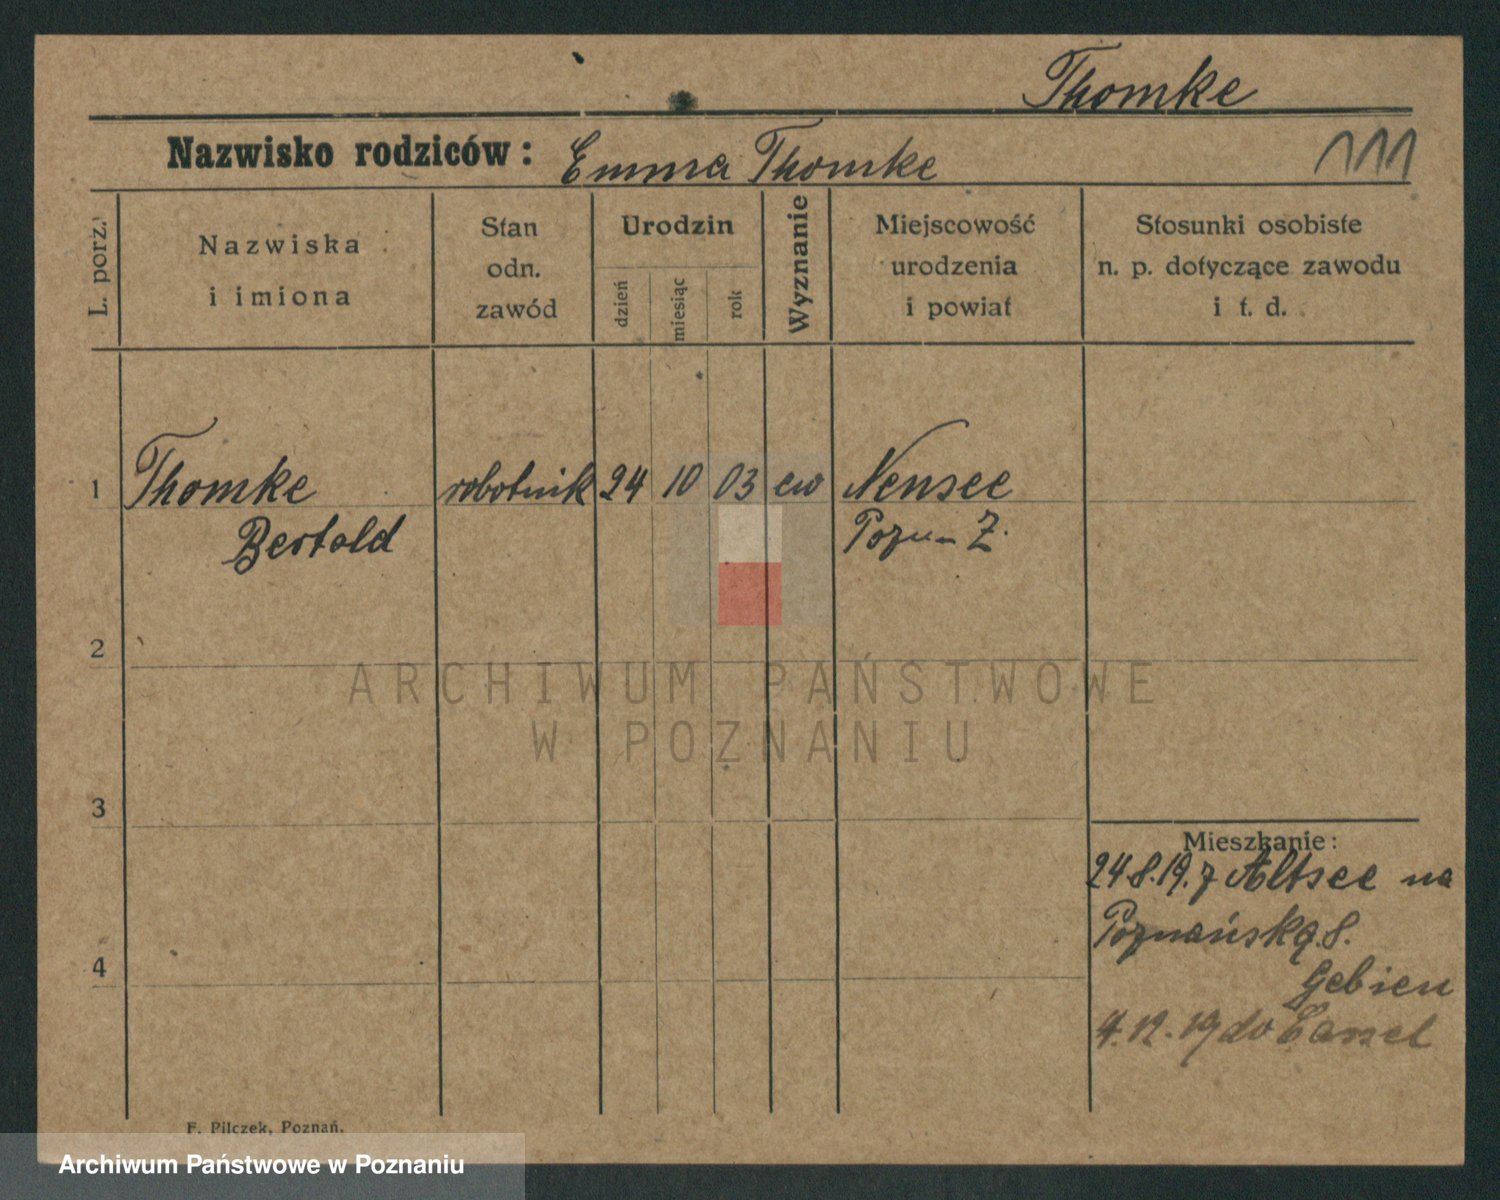 Thomke
Nazwisko rodziców: Emma Thomke
111
L. porz.
Nazwiska
i imiona
Stan
odn.
zawód
Urodzin
dzień
miesiąc
rok
Wyznanie
Miejscowość
urodzenia
i powiat
Stosunki osobiste
n. p. dotyczące zawodu
i t. d.
1 Thomke robotnik 24 10 03 ew Nensee
Bertold Pozn- Z.
2
3
4
Mieszkanie:
24.8.19. z Altsee na
Poznańską 8.
Gebien
4.12.19 do Cassel
F. Pilczek, Poznań.
ARCHIWUM PAŃSTWOWE
W POZNANIU
Archiwum Państwowe w Poznaniu